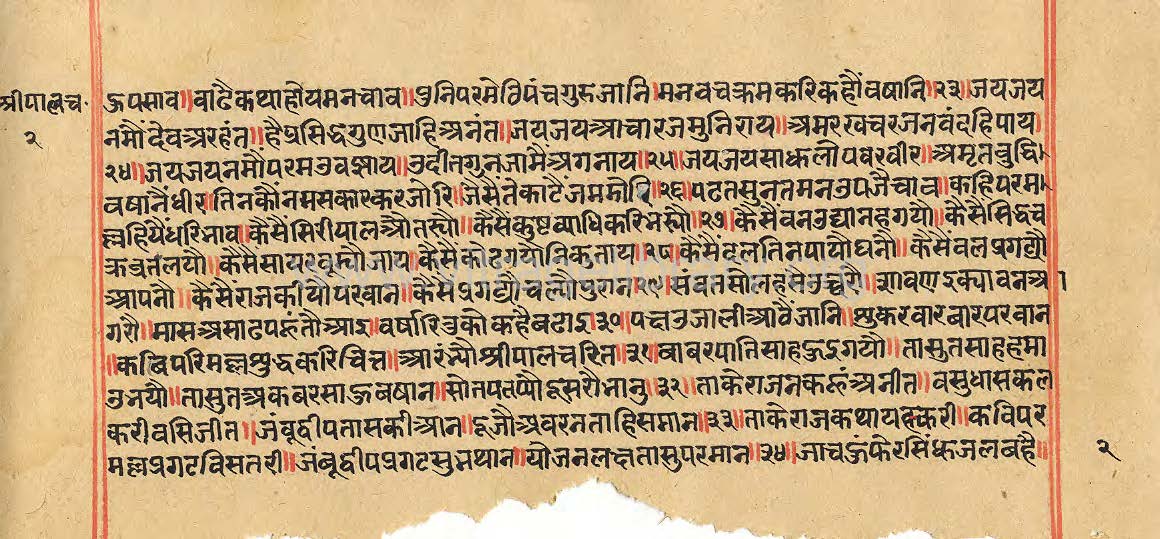 श्रीपालच॰
२
ऊपसाव॥ वाढै कथा होय मन चाव॥ पुनि परमेठि पंच गुरु जानि॥ मन वच क्रम करि कहौं वषानि॥२३॥ जय जय
नमौं देव अरहंत॥ है प्रसिद्ध गुण जाहि अनंत॥ जय जय आचारज मुनिराय॥ अमर खचर जन वंदहि पाय॥
२४॥ जय जय नमौं परम उवझाय॥ उदीत गुन जामै अगनाय॥२५॥ जय जय साध लौ पवर वीर॥ अमृत वुद्धि
वषानै धीर॥ तिनकौं नमसकार कर जोरि॥ जैसे ते काटै जम डोरि॥२६॥ पढत सुनत मन उपजै चाव॥ कहि परम
ल्ल हियै धरि भाव॥ कैसै सिरीपाल औतस्यौ॥ कैसै कुष्ट व्याधि करि भस्यौ॥२७॥ कैसै वन उद्यानह गयौ॥ कैसै सिद्धच
क्र व्रत लयौ॥ कैसै सायर वूस्यौ जाय॥ कैसै कोढ गयौ निकुताय॥२८॥ कैसै दल तिन पायौ घनौ॥ कैसै वल प्रगट्यौ
आपनौ॥ कैसै राज कीयौ परवान॥ कैसे प्रगट्यौ चलौ पुरान॥२९॥ संवत सौलह सै उच्चरौ॥ सावण इक्यावन अ
गरौ॥ मास असाढ पहुंतौ आइ॥ वर्षा रितु को कहै वढाइ॥३०॥ पक्ष उजाली आठै जानि॥ शुकरवार वार परवान
॥ कवि परिमल्ल शुद्ध करि चित्त॥ आरंभ्यौ श्रीपाल चरित॥३१॥ बाबर पातिसाह ऊइ गयौ॥ ता सुत साह हमा
उ भयौ॥ ता सुत अकबरसाऊ वषान॥ सो तप तप्यौ दूसरो भानु॥३२॥ ताकै राज न कहूं अनीत॥ वसुधा सकल
करी वसि जीत॥ जंबूद्वीप तास की आन॥ दूजौ अवर न ताहि समान॥३३॥ ताके राज कथा यह करी॥ कवि पर
मल्ल प्रगट विसतरी॥ जंबूद्वीप प्रगट सुभ थान॥ योजन लक्ष तासु परमान॥३४॥ जा चऊं फेर सिंधु जल बहै॥
२